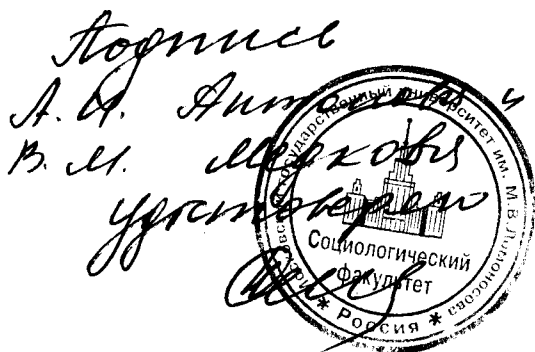 Подпись
А. И. Антонова и
В. М. Медкова
удостоверяю
Московский государственный университет им. М.В.Ломоносова
Социологический
факультет
* Россия *